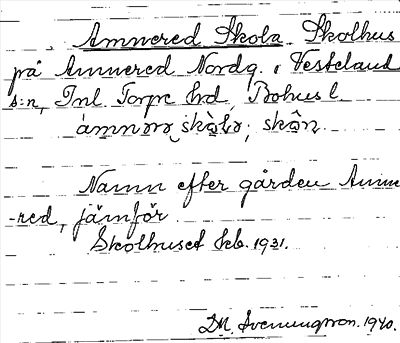 Amnered Skola. Skolhus
på Amnered Nordg. i Vesteland
s:n, Inl. Torpe hd, Bohusl.
Namn efter gården Amne
-red, jämför
Skolhuset kb. 1931.
DM. Svenungsson. 1940.